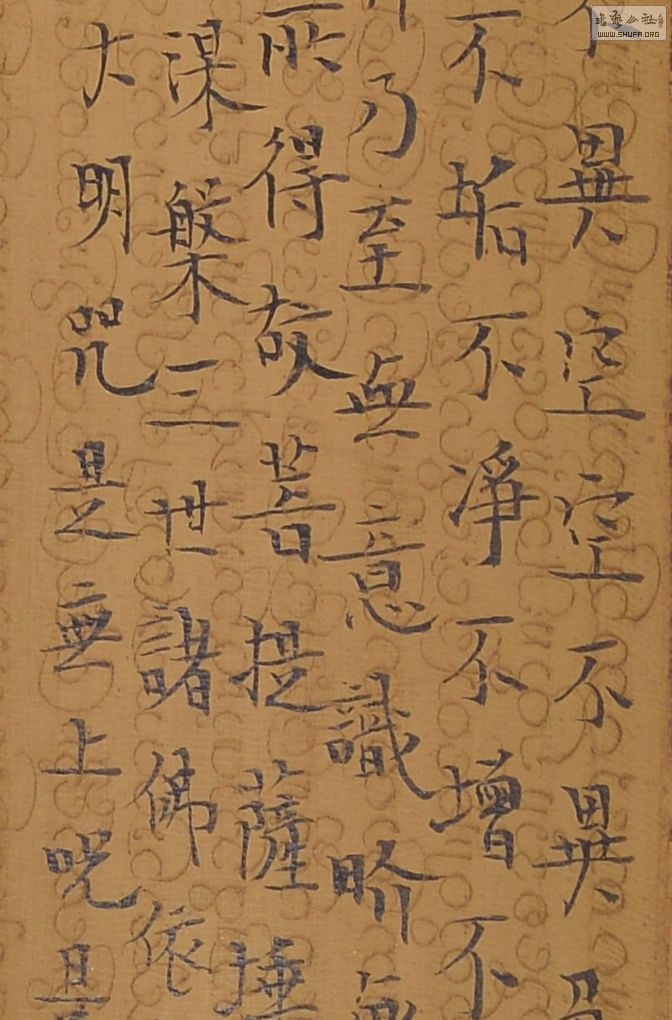 不異空空不異色
不垢不淨不增不
乃至無意識畍無
所得故菩提薩埵
深槃三世諸佛依
大明咒是無上呪是
書藝公社
WWW.SHUFA.ORG